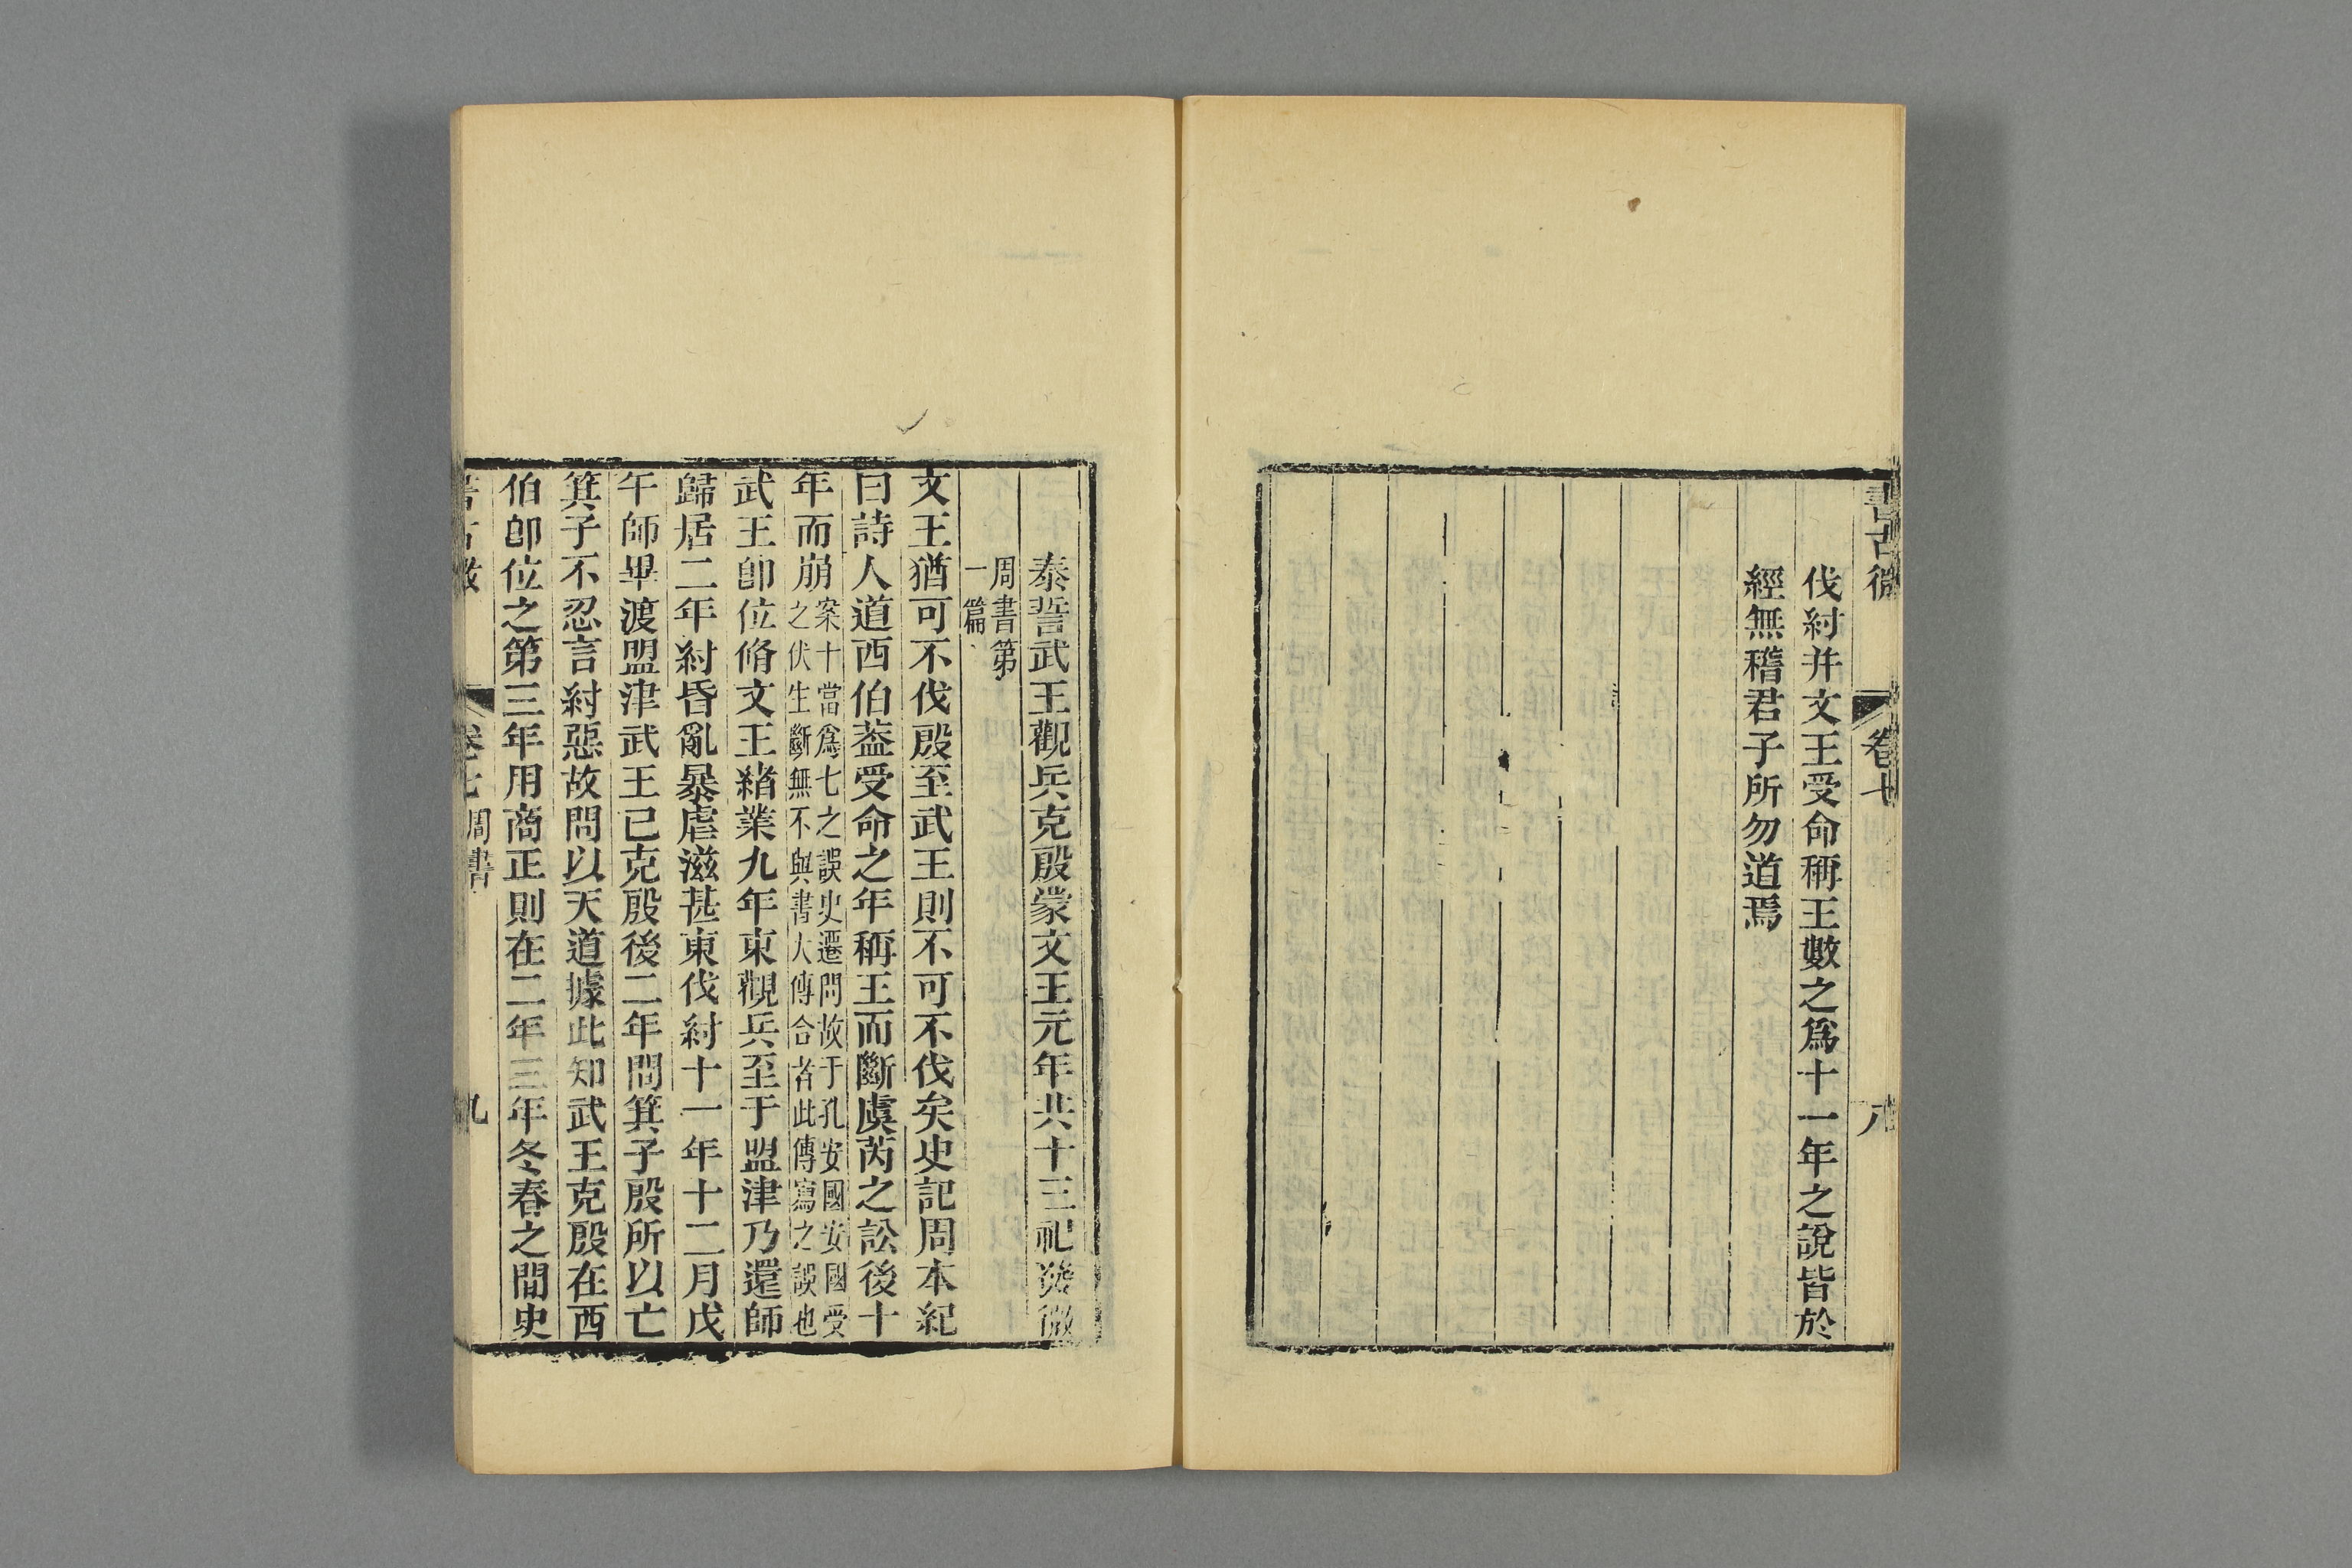 書古微 卷七 八
伐紂并文王受命稱王數之爲十一年之說皆於
經無稽君子所勿道焉
泰誓武王觀兵克殷蒙文王元年共十三祀發微
周書第
一篇
文王猶可不伐殷至武王則不可不伐矣史記周本紀
曰詩人道西伯葢受命之年稱王而斷虞芮之訟後十
年而崩案十當爲七之誤史遷問故于孔安國安國受之伏生斷無不與書大傳合者此傳寫之誤也
武王卽位脩文王緒業九年東觀兵至于盟津乃還師
歸居二年紂昏亂暴虐滋甚東伐紂十一年十二月戊
午師畢渡盟津武王已克殷後二年問箕子殷所以亡
箕子不忍言紂惡故問以天道據此知武王克殷在西
伯卽位之第三年用商正則在二年三年冬春之間史
書古微 卷七 周書 九